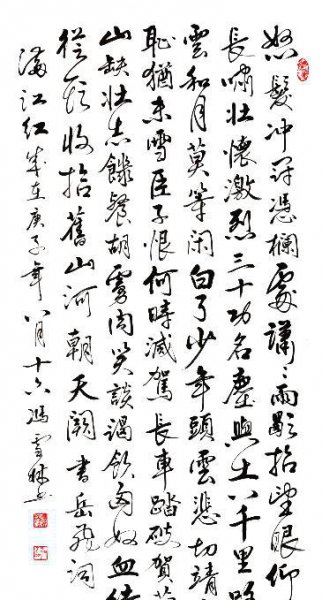 怒髮冲冠憑欄處瀟〻雨歇抬望眼仰
長嘯壯懷激烈三十功名塵與土八千里路
雲和月莫等闲白了少年頭空悲切靖
恥猶未雪臣子恨何時滅駕長車踏破賀
山缺壮志饑餐胡虜肉笑談渴飲匈奴血待
從頭收拾舊山河朝天闕書岳飛詞
滿江紅歲在庚子年八月十六馮雪